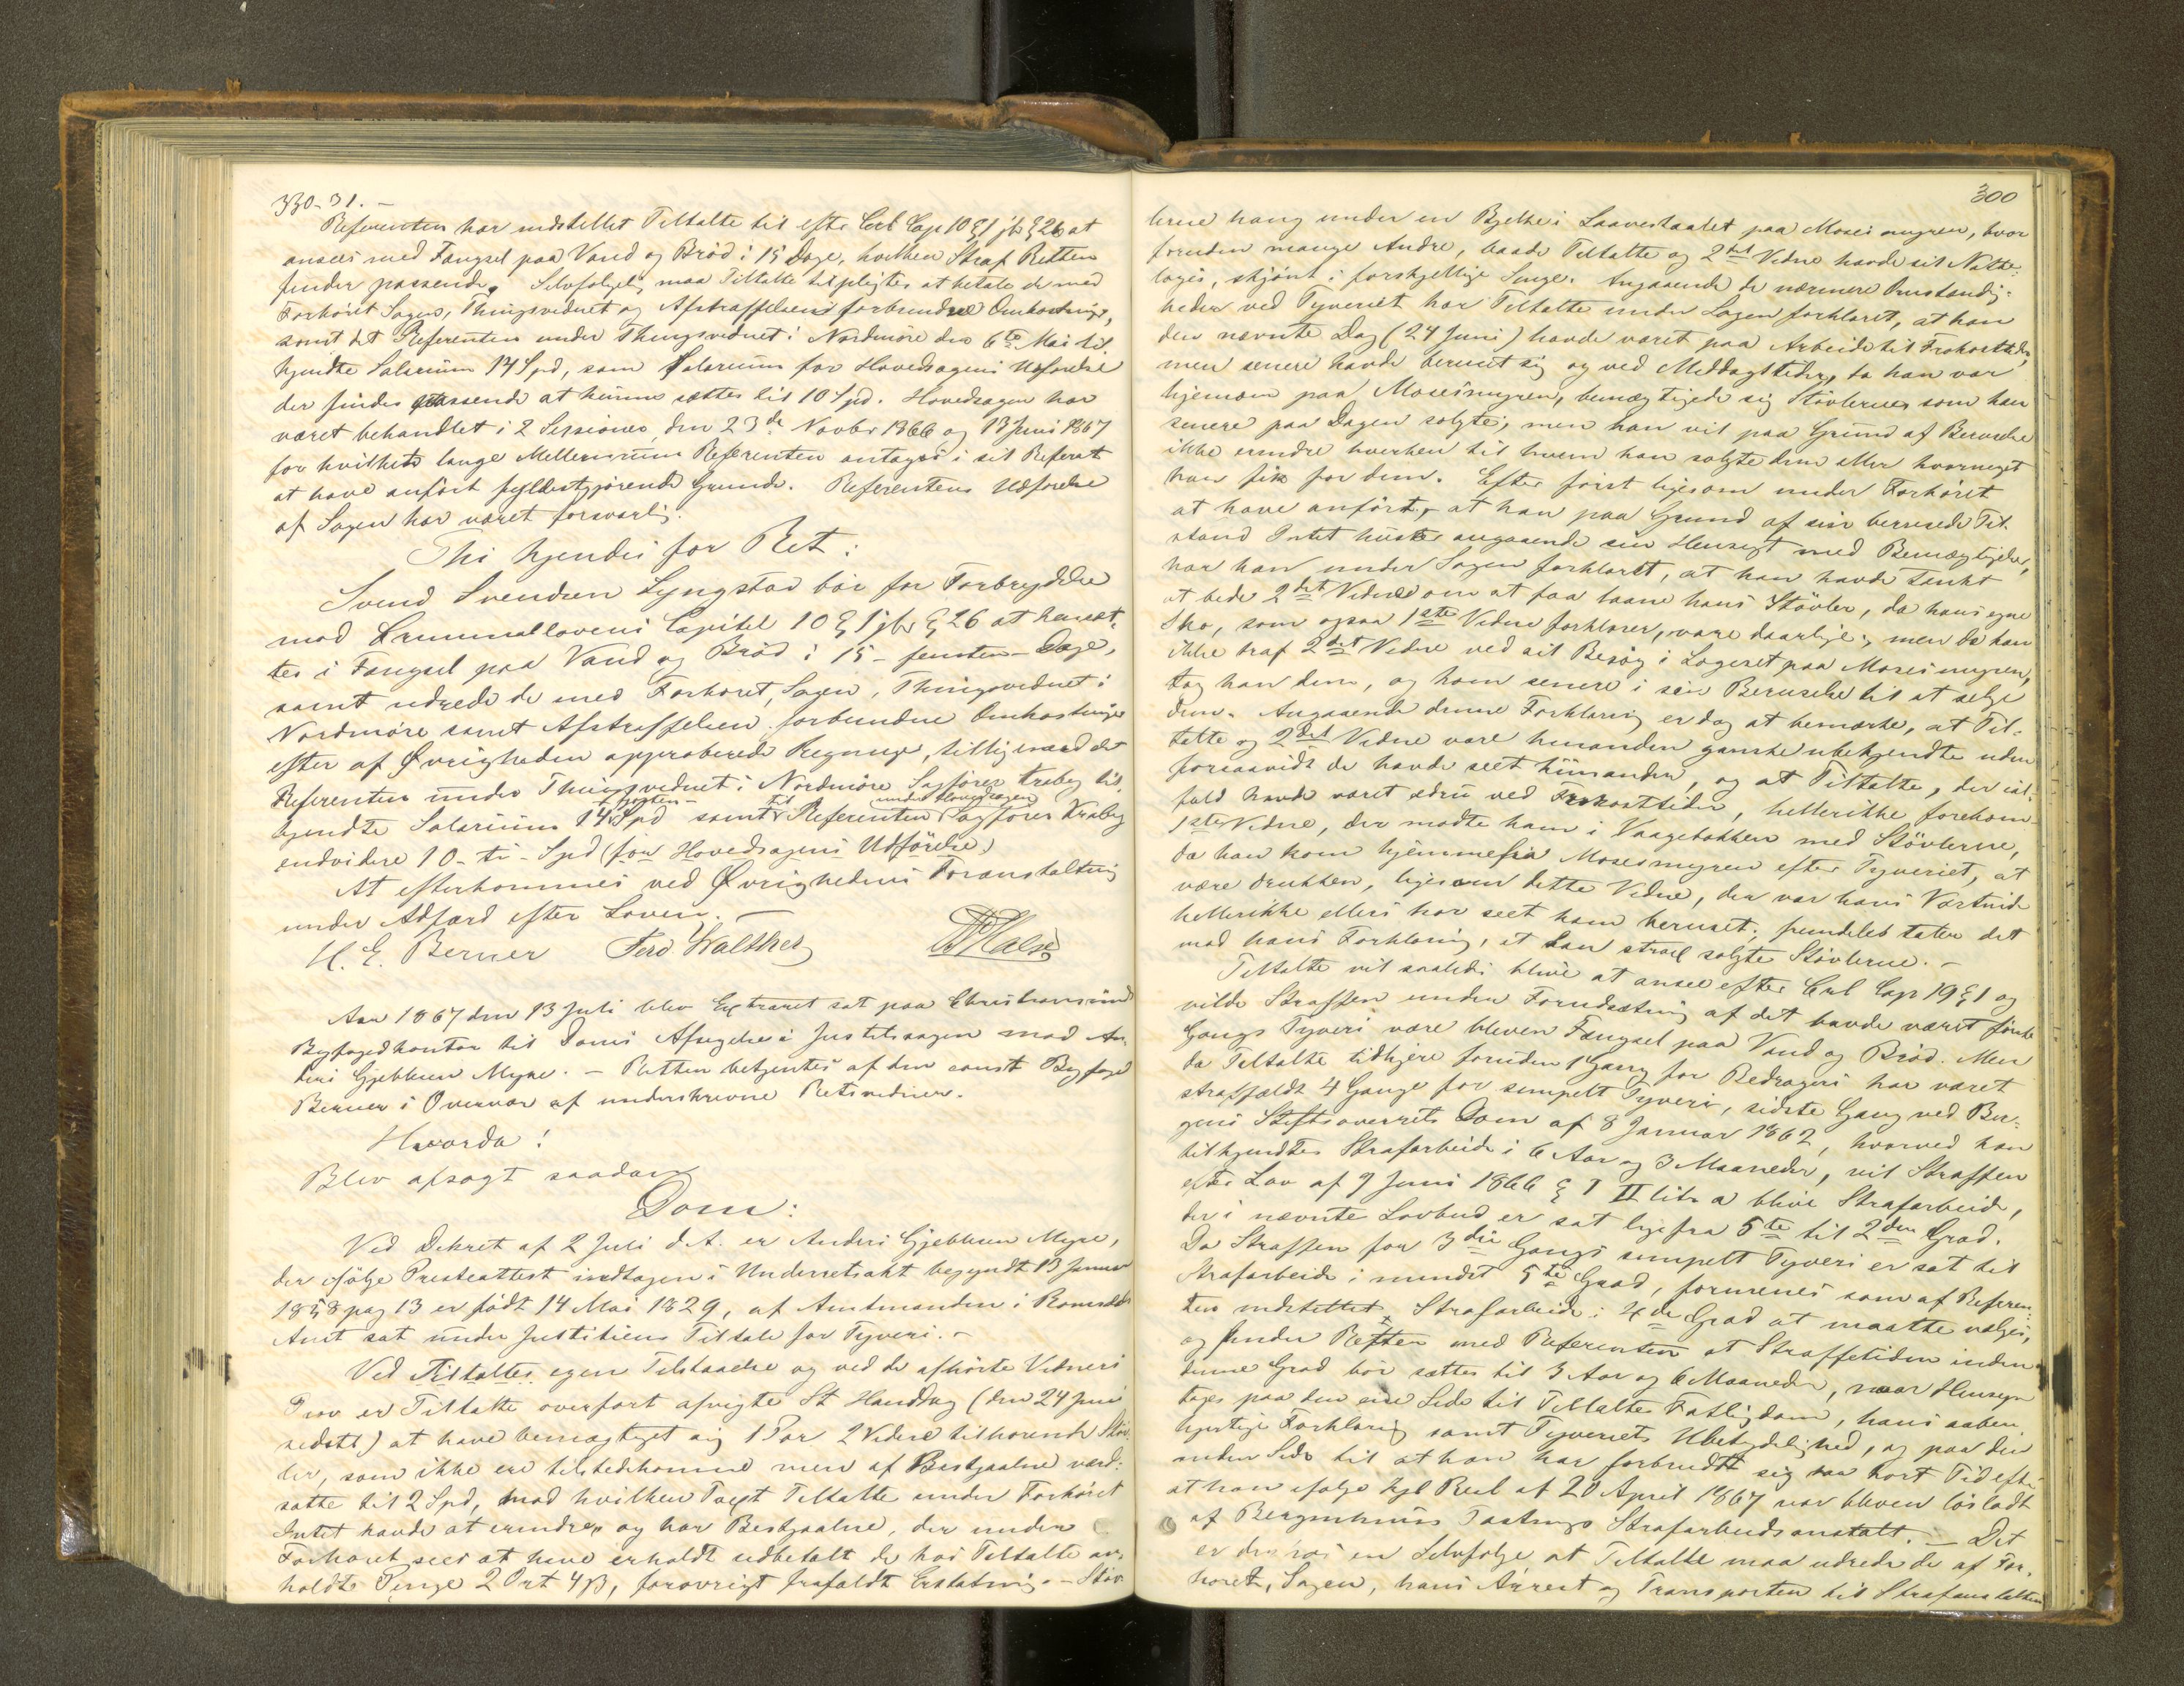 330-31. -
Referenten har indstillet Tiltalte til efter Crl Cap 10 § 1 jfr § 26 at
ansees med Fængsel paa Vand og Brød i 15 Dage, hvilken Straf Retten
finder passende. Selvfølgelig maa Tiltalte tilpligtes at betale de med
Forhöret Sagen, Thingsvidnet og Afstraffelsen forbundne Omkostninger,
samt det Referenten under Thingsvidnet i Nordmøre den 6te Mai til
kjendte Salarium 14 Spd, som Salarium for Hovedsagens Udførelse
der findes passende at kunne sættes til 10 Spd. Hovedsagen har
været behandlet i 2 Sessioner, den 23de Novbr 1866 og 13 Juni 1867
for hvilkets lange Mellemrum Referenten antages i sit Referat
at have anført fyldestgjørende Grunde. Referentens Udførelse
af Sagen har været forsvarlig.
Thi kjendes for Ret:
Svend Svendsen Lyngstad bør for Forbrydelse
mod Criminallovens Capitel 10 § 1 jfr § 26 at hensæt-
tes i Fængsel paa Vand og Brød i 15 - femten - Dage,
samt udrede de med Forhøret, Sagen, Thingsvidnet i
Nordmøre samt Afstraffelsen forbundne Omkostninger
efter af Øvrigheden approberede Regninger, tilligemed det
Referenten under Thingsvidnet i Nordmøre Sagfører Krabey til-
- fjorten - til under Hovedsagen
kjendte Salarium 14 Spd samt Referenten Sagfører Krabey
endvidere 10 - ti - Spd (for Hovedsagens Udførelse)
At efterkommes ved Øvrighedens Foranstaltning
under Adfærd efter Loven. -
H. E. Berner Ferd. Walther
Aar 1867 den 13 Juli blev Extraret sat paa Christianssunds
Byfogedkontor til Doms Afsigelse i Justitssagen mod An-
ders Gjebhsen Myre. - Retten betjentes af den const Byfoged
Berner i Overvær af underskrevne Retsvidner.
Hvorda:
Blev afsagt saadan
Dom:
Ved Dekret af 2 Juli d. A. er Anders Gjebhsen Myre,
der ifølge Presteattest indtagen i Underretsakt begyndt 13 Januar
1858 pag 13 er født 14 Mai 1829, af Amtmanden i Romsdals
Amt sat under Justitiens Tiltale for Tyveri. -
Ved Tiltaltes egen Tilstaaelse og ved de afhørte Vidners
Prov er Tiltalte overført afvigte St Hansdag (den 24 Juni
sidstl) at have bemægtiget sig 1 Par 2 Vidne tilhørende Støv-
ler, som ikke ere tilstedekomne men af Bestjaalne værd-
satte til 2 Spd, mod hvilken Taxt Tiltalte under Forhöret
Intet havde at erindre, og har Bestjaalne, der under
Forhöret sees at have erholdt udbetalt de hos Tiltalte an-
holdte Penge 2 Ort 4 β, forøvrigt frafaldt Erstatning. - Støv-
300
lerne hang under en Bjelke i Laavestaalet paa Mosesmyren, hvor
foruden mange Andre, baade Tiltalte og 2det Vidne havde sit Natte-
logis, skjønt i forskjellige Senge. Angaaende de nærmere Omstændig-
heder ved Tyveriet har Tiltalte under Sagen forklaret, at han
den nævnte Dag (24 Juni) havde været paa Arbeide til Frokosttider,
men senere havde beruset sig og ved Middagstider, da han var
hjemom paa Mosesmyren, bemægtigede sig Støvlerne, som han
senere paa Dagen solgte, men han vil paa Grund af Beruselse
ikke erindre hverken til hvem han solgte dem eller hvormeget
han fik for dem. Efter først ligesom under Forhöret
at have anført, at han paa Grund af sin berusede Til-
stand Intet husker angaaende sin Hensigt med Bemægtigelsen,
har han under Sagen forklaret, at han havde tænkt
at bede 2det Vidne om at faa laane hans Støvler, da hans egne
Sko, som ogsaa 1ste Vidne forklarer, vare daarlige, men da han
ikke traf 2det Vidne ved sit Besøg i Logeret paa Mosesmyren,
tog han dem, og kom senere i sin Beruselse til at selge
dem. Angaaende denne Forklaring er dog at bemærke, at Til-
talte og 2det Vidne vare hinanden ganske ubekjendte uden
forsaavidt de havde seet hinanden, og at Tiltalte, der ial-
fald havde været ædru ved Frokosttider, hellerikke forekom
1ste Vidne, der mødte ham i Vaagebakken med Støvlerne,
da han kom hjemmefra Mosesmyren efter Tyveriet, at
være drukken, ligesom dette Vidne, der var hans Vertinde
hellerikke ellers har seet ham beruset; fremdeles taler det
mod hans Forklaring, at han strax solgte Støvlerne. -
Tiltalte vil saaledes blive at ansee efter Crl Cap 19 § 1 og
vilde Straffen under Forudsætning af det havde været første
Gangs Tyveri være bleven Fængsel paa Vand og Brød. Men
da Tiltalte tidligere foruden 1 Gang for Bedrageri har været
straffældt 4 Gange for simpelt Tyveri, sidste Gang ved Ber-
gens Stiftsoverrets Dom af 8 Januar 1862, hvorved han
tilkjendtes Strafarbeide i 6 Aar og 3 Maaneder, vil Straffen
efter Lov af 9 Juni 1866 § 1 II litr a blive Strafarbeide,
der i nævnte Lovbud er sat lige fra 5te til 2den Grad.
Da Straffen for 3die Gangs simpelt Tyveri er sat til
Strafarbeide i mindst 5te Grad, formenes som af Referen-
ten indstillet, Strafarbeide i 4de Grad at maatte vælges,
og finder Retten med Referenten at Straffetiden inden
denne Grad bør sættes til 3 Aar og 6 Maaneder, naar Hensyn
tages paa den ene Side til Tiltaltes Fattigdom, hans aaben-
hjertige Forklaring samt Tyveriets Ubetydelighed, og paa den
anden Side til at han har forbrudt sig saa kort Tid efter
at han ifølge kgl Resl af 20 April 1867 var bleven løsladt
af Bergenhuus Fæstnings Strafarbeidsanstalt. - Det
er derhos en Selvfølge at Tiltalte maa udrede de af For-
høret, Sagen, hans Arrest og Transporten til Strafanstalten